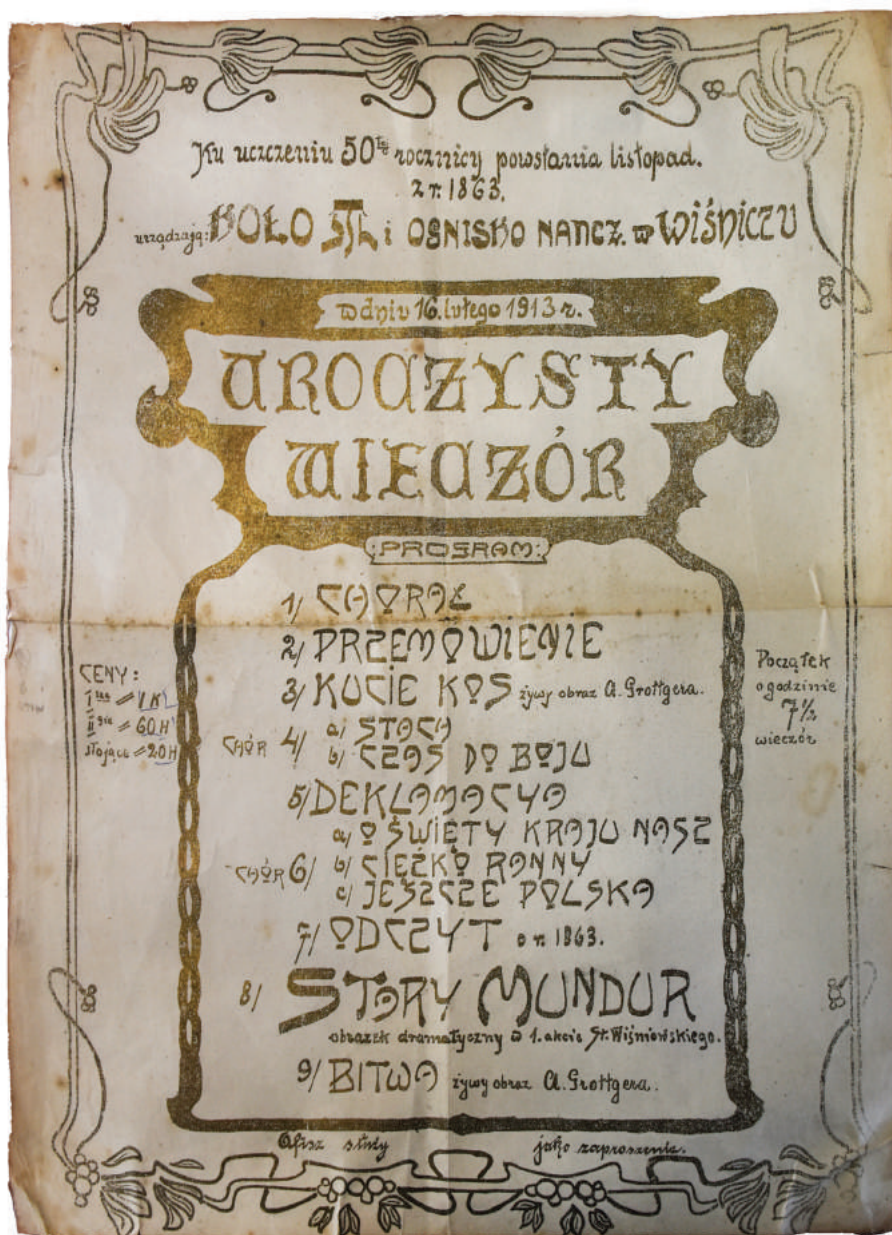 Ku uczczeniu 50tej rocznicy powstania listopad.
z r. 1863.
urządzają: KOŁO TSL i OGNISKO NAUCZ. w WIŚNICZU
w dniu 16. lutego 1913 r.
UROCZYSTY
WIECZÓR
:PROGRAM:
1/ CHORAŁ
2/ PRZEMÓWIENIE
3/ KUCIE KOS żywy obraz A. Grottgera.
CHÓR 4/ a/ STACH
b/ CZAS DO BOJU
5/ DEKLAMACYA
a/ O ŚWIĘTY KRAJU NASZ
CHÓR 6/ b/ CIĘŻKO RANNY
c/ JESZCZE POLSKA
7/ ODCZYT o r. 1863.
8/ STARY MUNDUR
obrazek dramatyczny w 1. akcie St. Wiśniowskiego.
9/ BITWA żywy obraz A. Grottgera.
CENY:
I sze = 1 K
II gie = 60 H
stojące = 20 H
Początek
o godzinie
7½
wieczór
Afisz służy jako zaproszenie.